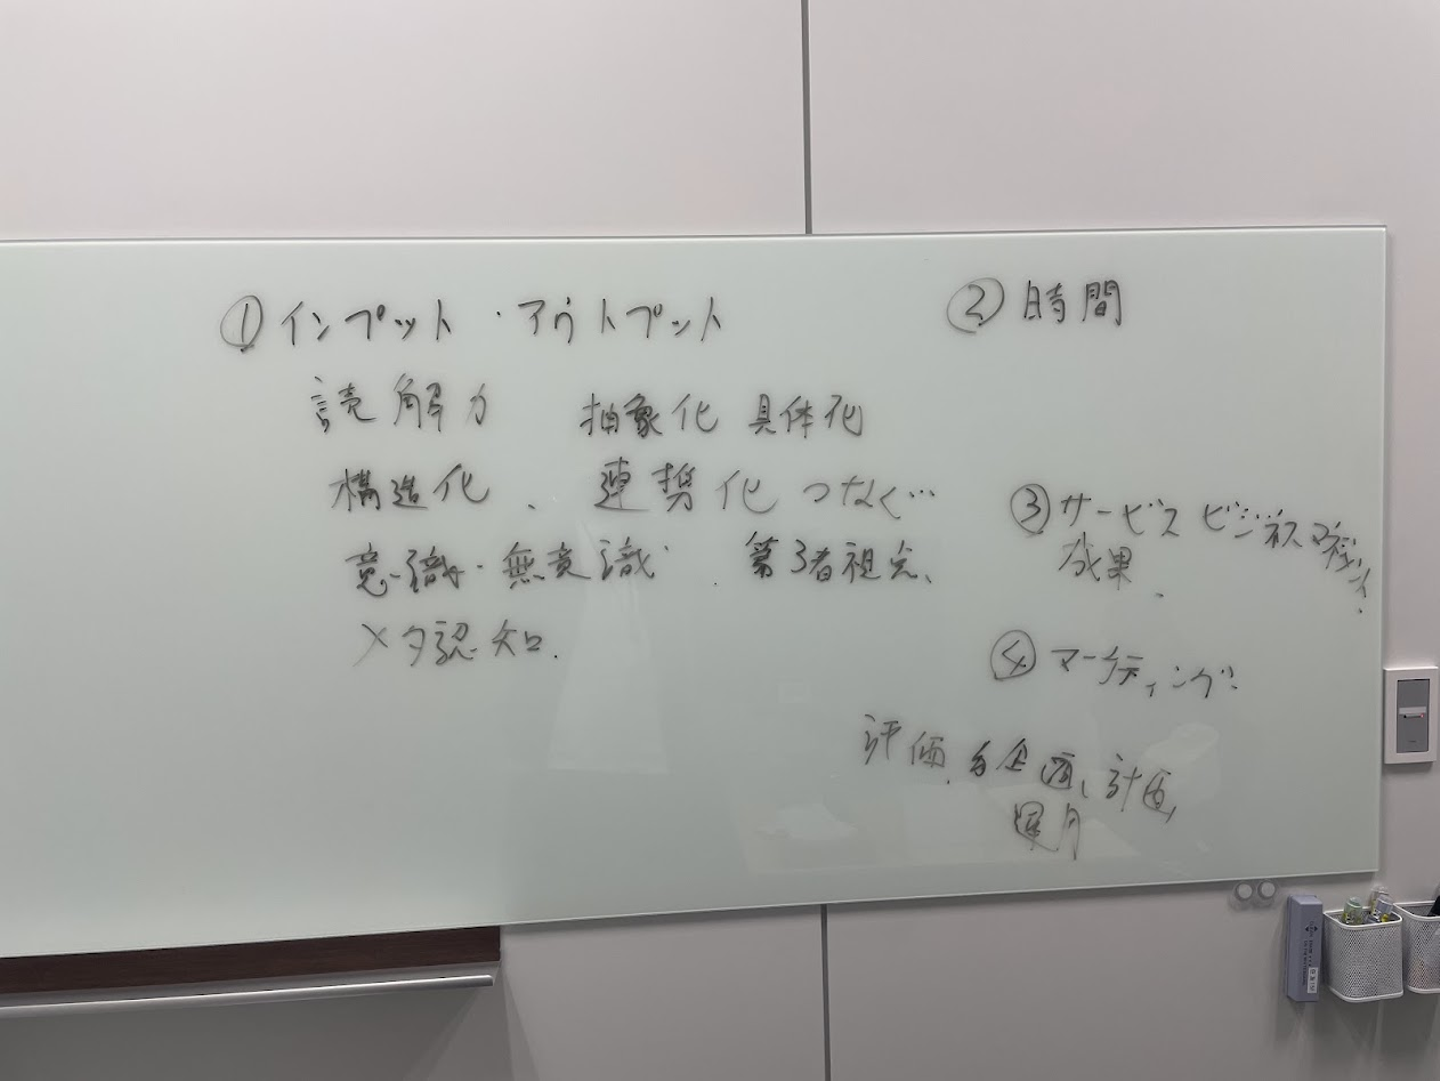 ① インプット・アウトプット
読解力 抽象化 具体化
構造化、連携化 つなく…
意識・無意識 、第3者視点、
メタ認知.
② 時間
③ サービス ビジネス
成果、
④ マーケティング
評価、企画、計画、
運用